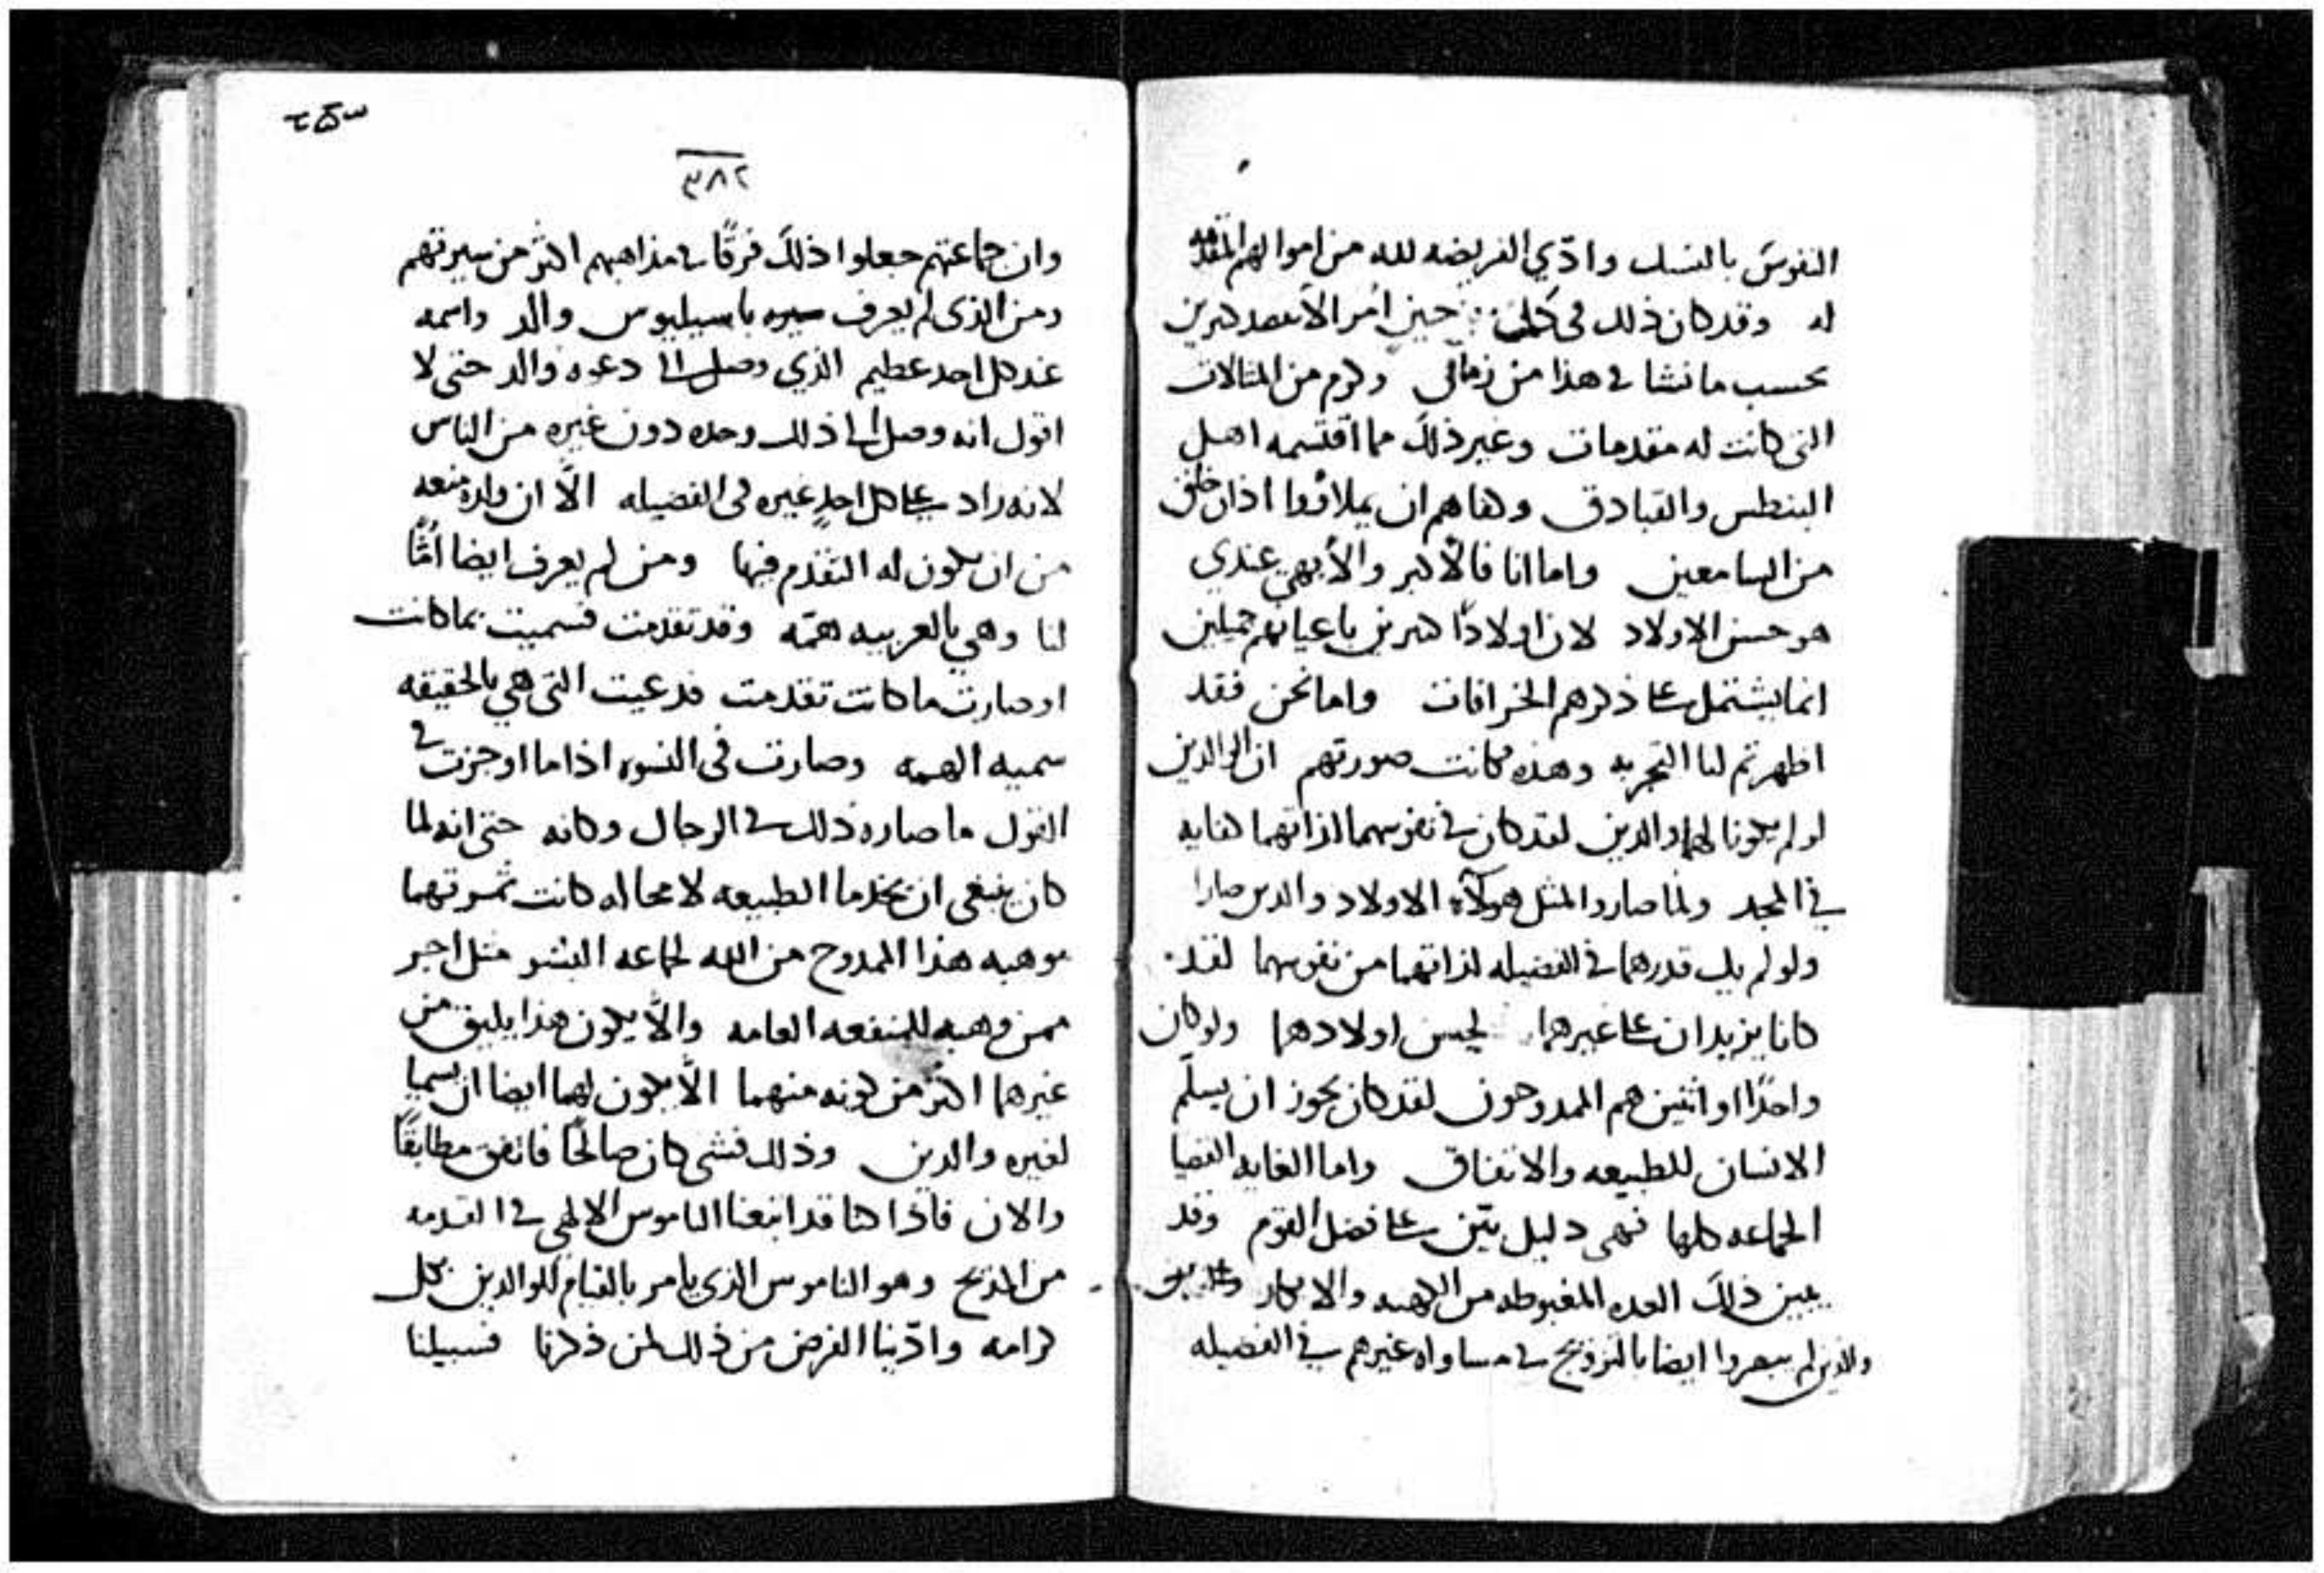 النفوس بالنسك وادّي الفريضه لله من اموالهم المتقدمه
له وقد كان ذلك في كليهما حين امر الا بعد كبرين
بحسب ما نشا في هذا من زماني وكرم من المثالات
التي كانت له مقدمات وغير ذلك مما اقتسمه اهل
البنطس والقبادق وكفاهم ان يملاؤوا اذان خلق
من السامعين واما انا فالاكبر والأبهي عندي
هو حسن الاولاد لان اولادًا كبرين باعيانهم جميلين
انما يشتمل على ذكرهم الخرافات واما نحن فقد
اظهرتم لنا التجربه وهذه كانت صورتهم ان الوالدين
لو لم يكونا لهما والدين لقد كان في نفوسهما لذاتهما كفايه
في المجد ولما صاروا لمثل هولآء الاولاد والدين صارا
ولو لم يك قدرهما في الفضيله لذاتهما من نفوسهما لقد
كانا يزيدان على غيرهما لحسن اولادهما ولو كان
واحدًا او اثنين هم الممدوحون لقد كان يجوز ان يسلّم
الانسان للطبيعه والاتفاق واما الغايه القصيا
الجماعه كلها فهى دليل بيّن على فضل القوم وقد
يبين ذلك العده المغبوطه من الكهنه والابكار
والذين لم يبهروا ايضا بالتزويج في مساواه غيرهم في الفضيله
٣٨٢
وان جماعتهم جعلوا ذلك فرقًا في مذاهبهم اكثر من سيرتهم
ومن الذى لم يعرف سيره باسيليوس والد واسمه
عند كل احد عظيم الذي وصل الى دعوه والد حتى لا
اقول انه وصل الى ذلك وحده دون غيره من الناس
لانه زاد على كل احدٍ غيره فى الفضيله الّا ان ولده منعه
من ان يكون له التقدم فيها ومن لم يعرف ايضا امًّا
لنا وهي بالعربيه همّه وقد تقدمت فسميت بما كانت
او صارت ما كانت تقدمت فدعيت التى هي بالحقيقه
سميه الهمه وصارت فى النسوه اذا ما اوجزت في
القول ما صاره ذلك في الرجال وكانه حتى انه لما
كان ينبغى ان يخدما الطبيعه لا محاله كانت ثمرتهما
موهبه هذا الممدوح من الله لجماعه البشر مثل اجر
ممن وهبه للمنفعه العامه والّا يكون هذا يليق من
غيرهما اكثر من كونه منهما الّا يكون لهما ايضا ان يسميا
لغيره والدين وذلك فشى كان صالحًا فاتفق مطابقًا
والان فاذا كنا قد اتبعنا الناموس الالهي في التقدمه
من المديح وهو الناموس الذى يامر بالقيام للوالدين بكل
كرامه وادّينا الفرض من ذلك لمن ذكرنا فسبيلنا